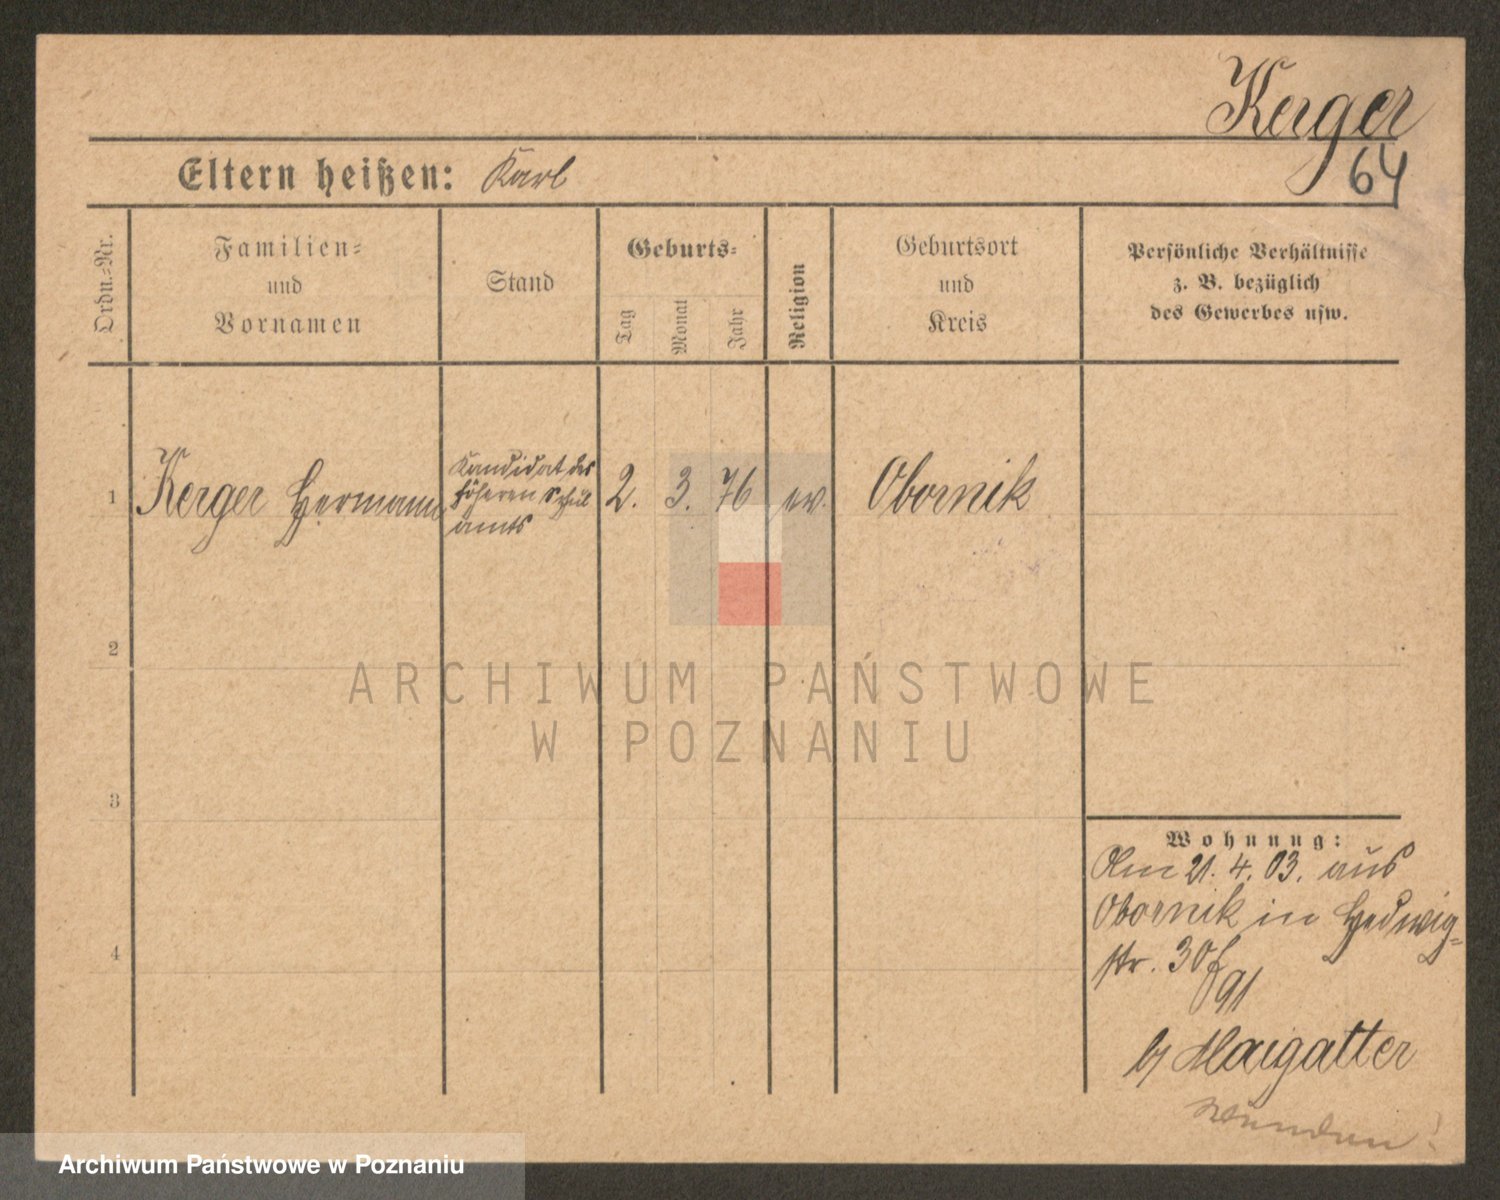 Kerger
64
Eltern heißen: Karl
Ordn.-Nr.
Familien-
und
Vornamen
Stand
Geburts-
Tag
Monat
Jahr
Religion
Geburtsort
und
Kreis
Persönliche Verhältnisse
z. B. bezüglich
des Gewerbes usw.
1
Kerger Hermann
Kandidat des
höheren Schul
amts
2. 3. 76
ev.
Obornik
2
3
4
Wohnung:
Am 21. 4. 03. aus
Obornik in Hedwig-
str. 30
91
b/ Maigatter
wenden!
ARCHIWUM PAŃSTWOWE
W POZNANIU
Archiwum Państwowe w Poznaniu